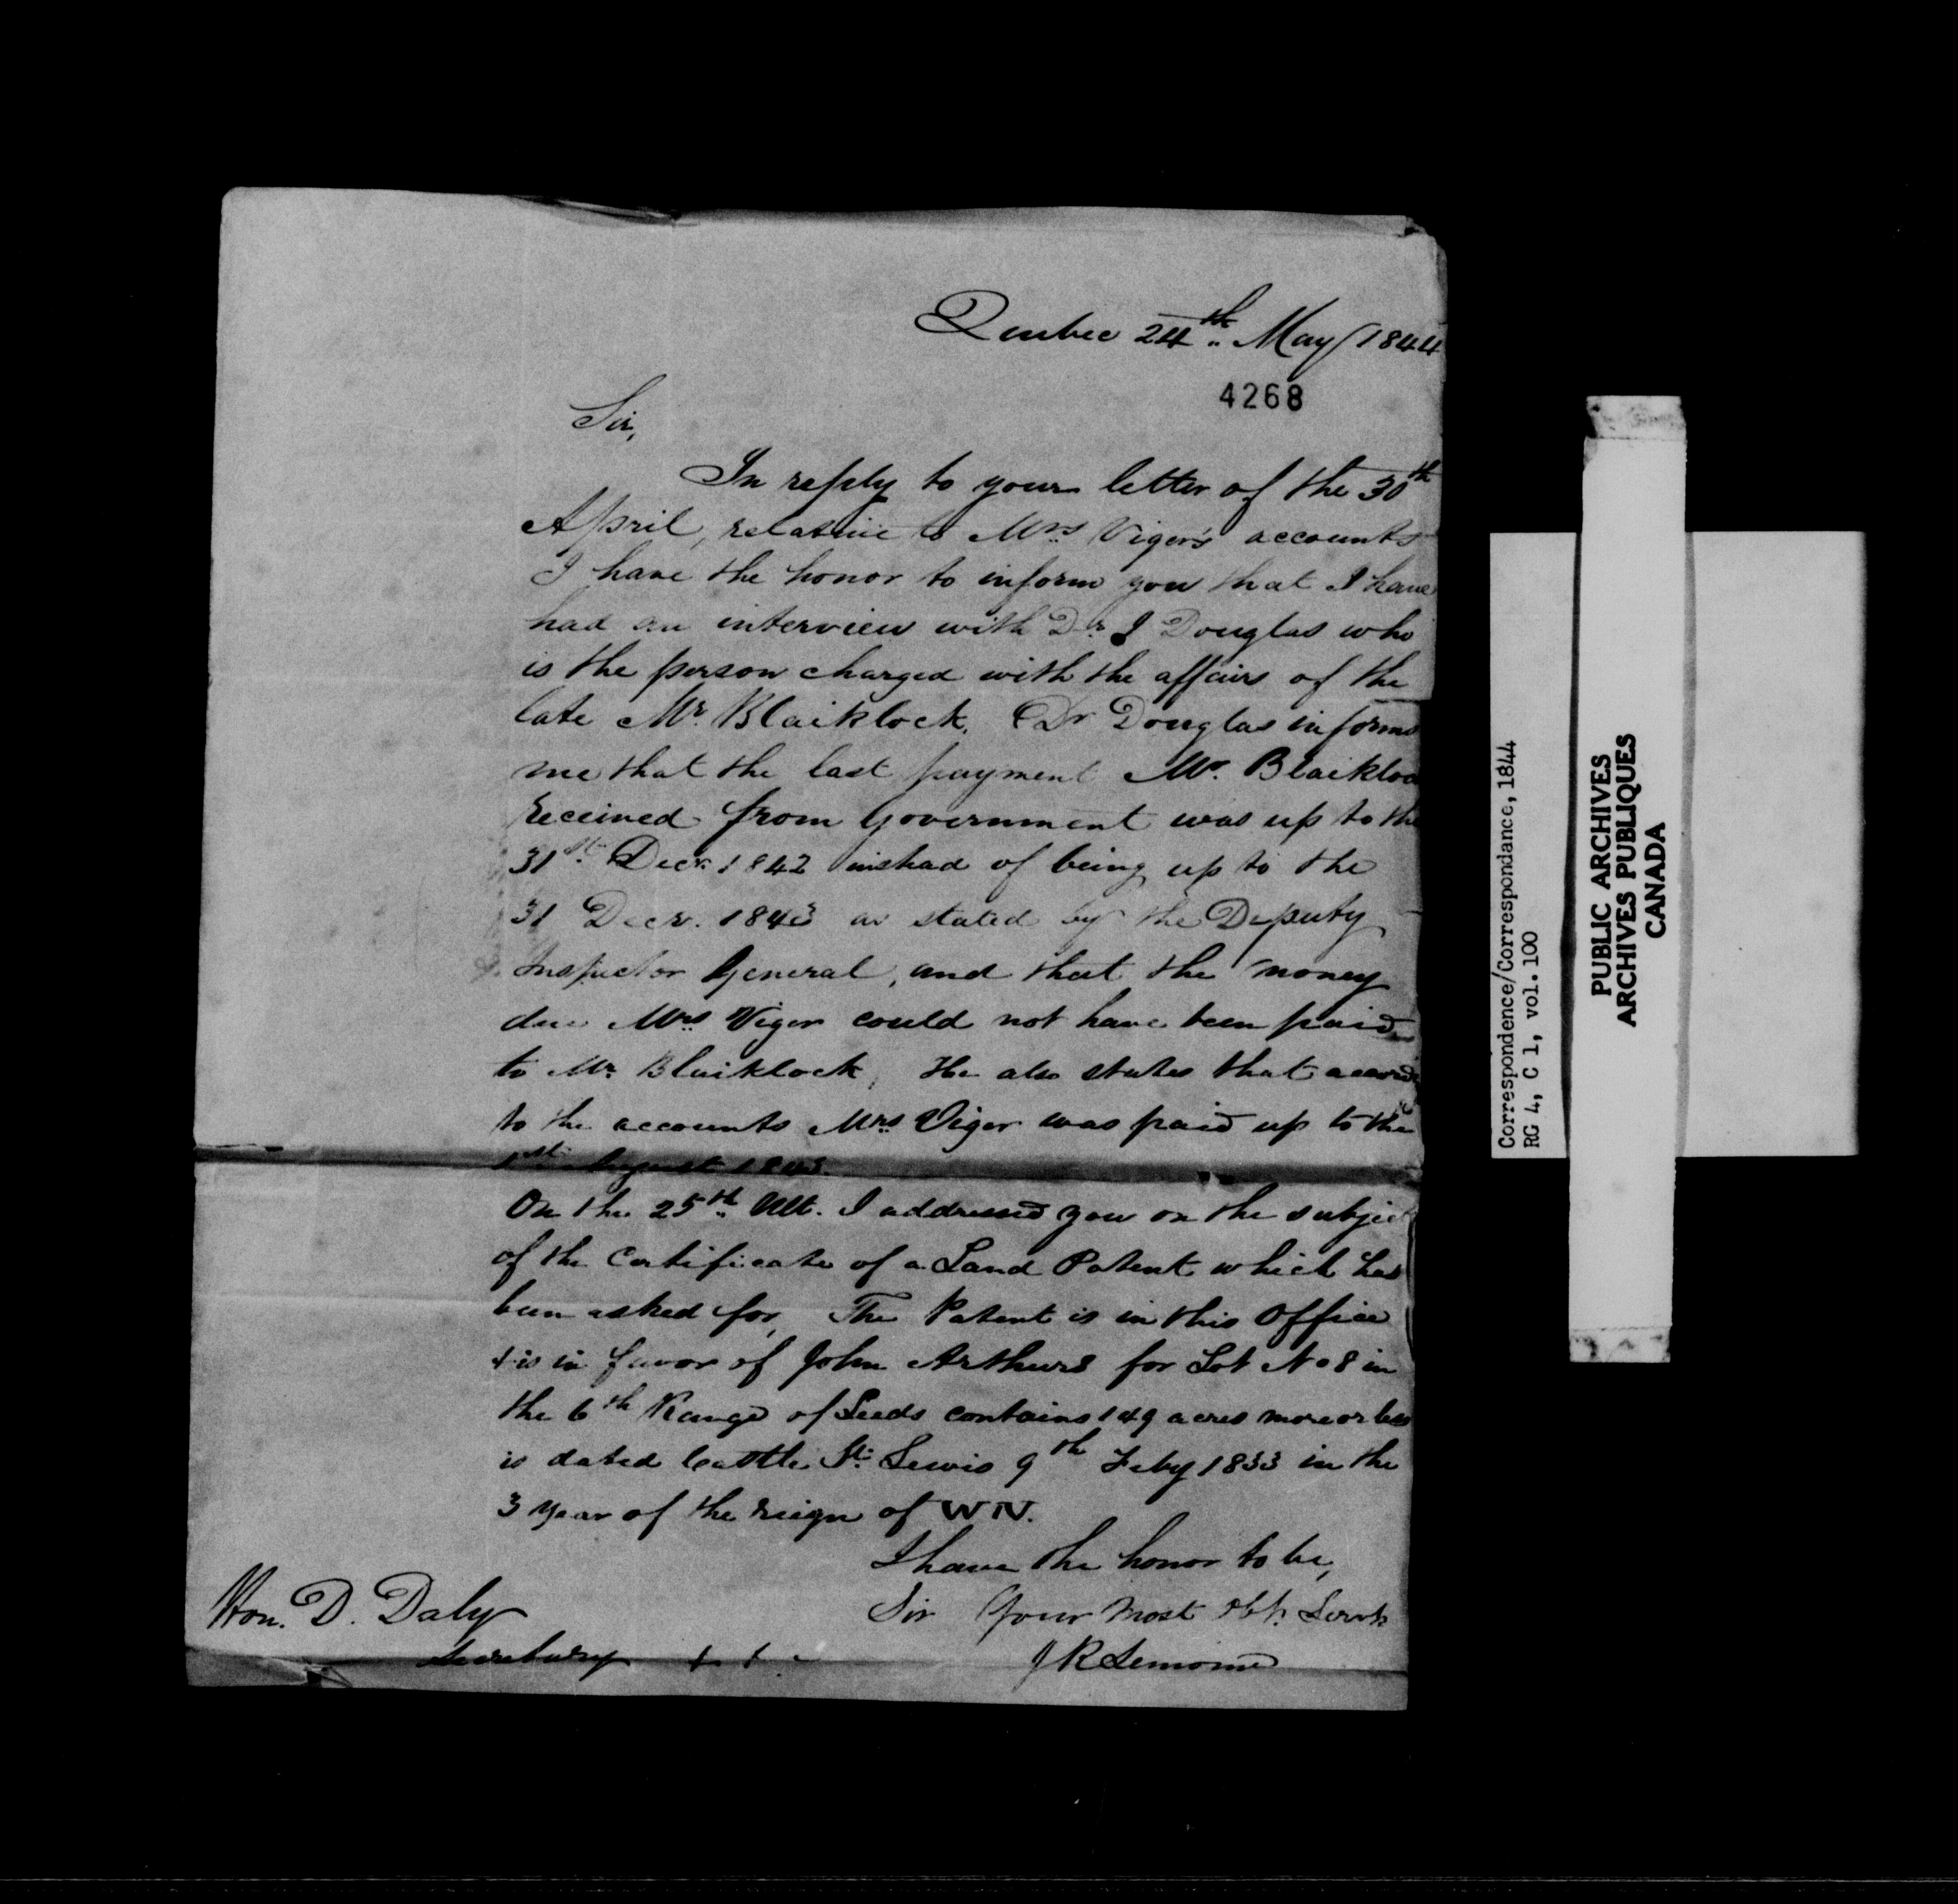 Quebec 24th May 1844
4268
Sir,
In reply to your letter of the 30th
April, relative to Mrs Viger's accounts
I have the honor to inform you that I have
had an interview with Dr J Douglas who
is the person charged with the affairs of the
late Mr. Blaiklock. Dr Douglas informs
me that the last payment Mr. Blaikloc
received from Government was up to the
31st Decr. 1842 instead of being up to the
31 Decr. 1843 as stated by the Deputy
Inspector General, and that the money
due Mrs Viger could not have been paid
to Mr. Blaiklock, He also states that accordg
to the accounts Mrs Viger was paid up to the
1st August 1843.
On the 25th Ult. I addressed you on the subject
of the Certificate of a Land Patent which has
been asked for, The Patent is in this Office
& is in favor of John Arthurs for Lot No 8 in
the 6th Range of Leeds contains 149 acres more or less
is dated Castle St. Lewis 9th Feby 1833 in the
3 year of the reign of W IV.
I have the honor to be,
Sir Your most Obt. Servt.
J R Lemoine
Hon. D. Daly
Secretary & &
Correspondence/Correspondance, 1844
RG 4, C 1, vol. 100
PUBLIC ARCHIVES
ARCHIVES PUBLIQUES
CANADA